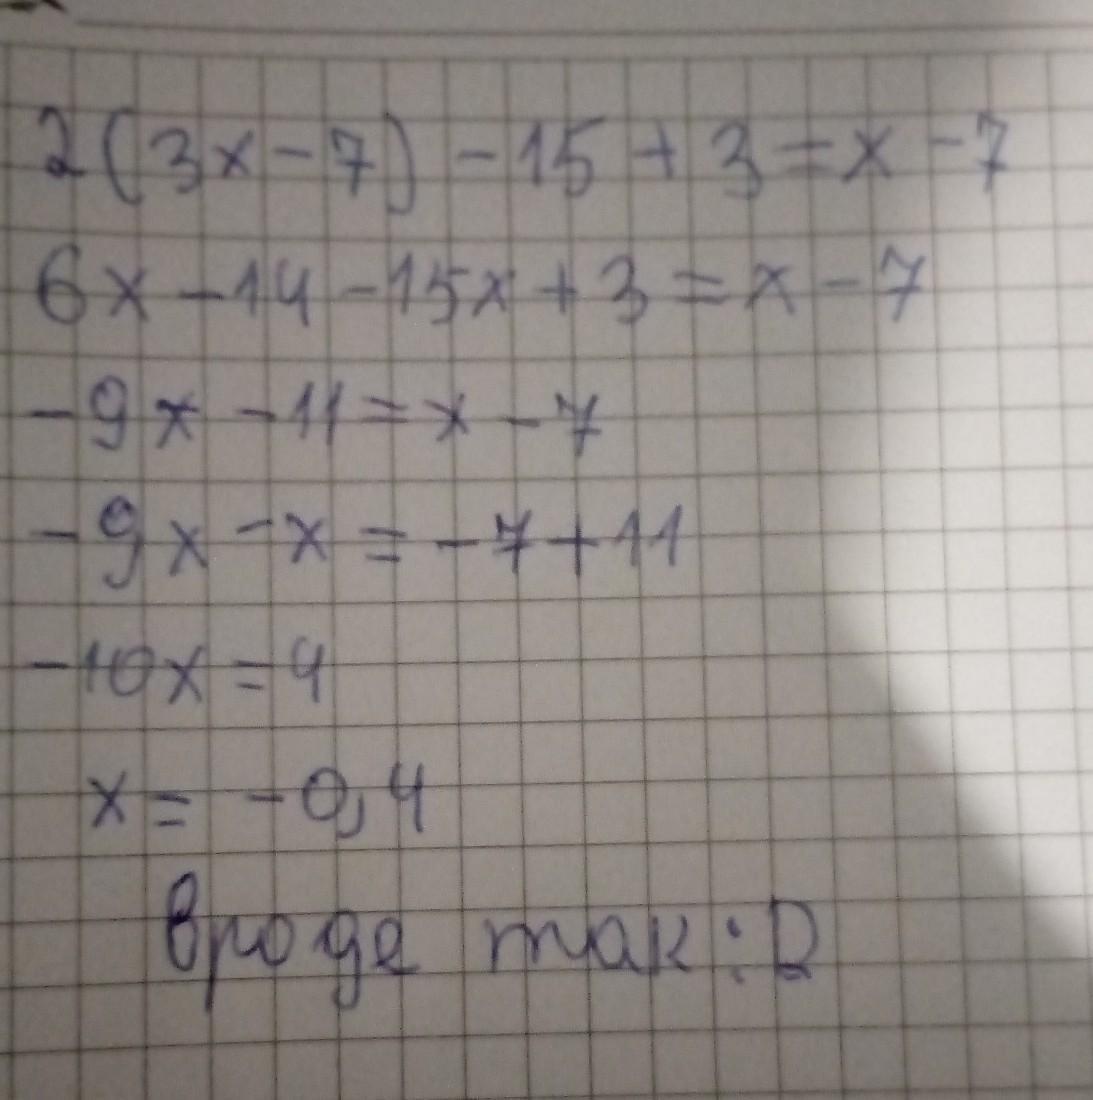 2(3x-7)-15+3=x-7
6x-14-15x+3=x-7
-9x-11=x-7
-9x-x=-7+11
-10x=4
x=-0,4
вроде так:D